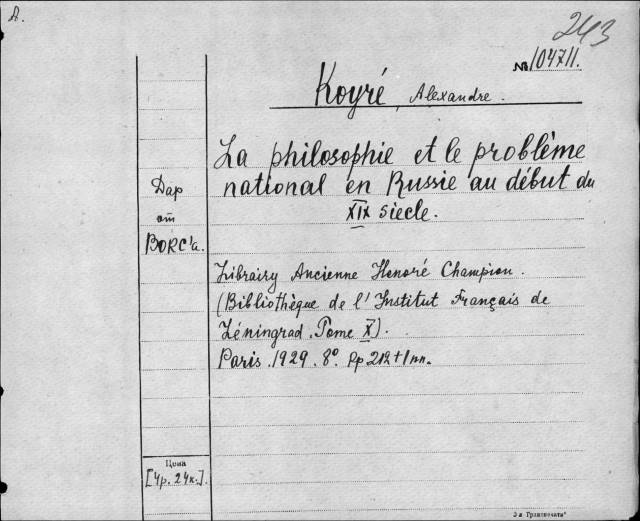 A.
243
№ 104711.
Koyré, Alexandre.
La philosophie et le problème
national en Russie au début du
XIX siecle.
Дар
от
ВОКС'а.
Librairy Ancienne Honoré Champion.
(Bibliothèque de l'Institut Français de
Léningrad. Tome X).
Paris. 1929. 8°. Pp 212+1 nn.
Цена
[4р. 24к.].
3-я Гранпечати"